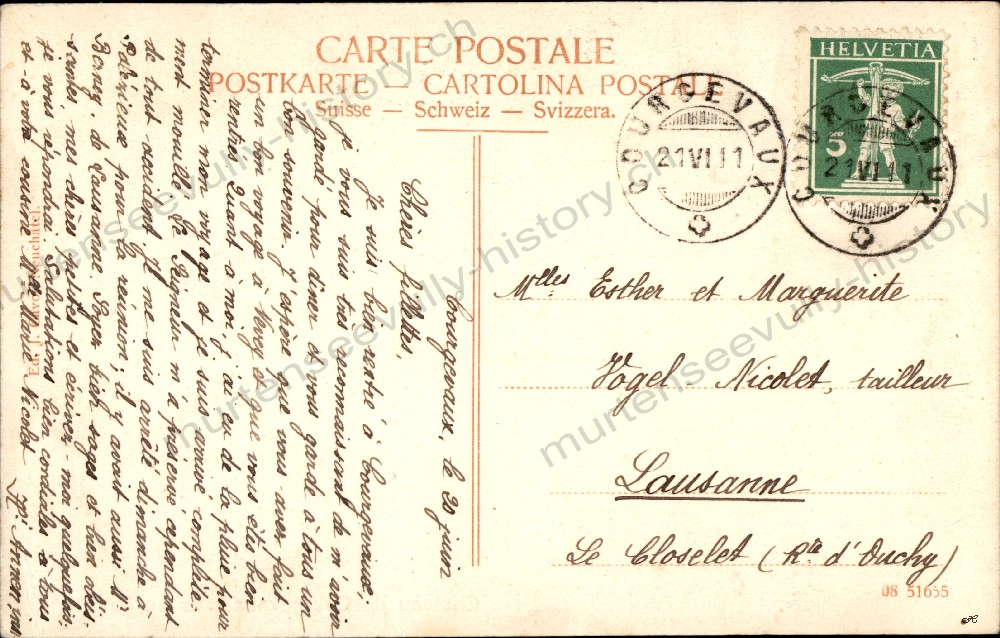 CARTE POSTALE
POSTKARTE — CARTOLINA POSTALE
Suisse — Schweiz — Svizzera.
HELVETIA
5
COURGEVAUX
21 VI 11
COURGEVAUX
21 VI 11
Courgevaux, le 20 juin
Chères fillettes,
Je suis bien rentré à Courgevaux,
je vous suis très reconnaissant de m'avoir
gardé pour dîner et vous garde à tous un
bon souvenir. J'espère que vous avez fait
un bon voyage à Vevey et que vous êtes bien
rentrées. Quant à moi, j'ai eu de la pluie pour
terminer mon voyage et je suis arrivé complète-
ment mouillé. Le Seigneur m'a préservé cependant
de tout accident. Je me suis arrêté dimanche à
pour la réunion; il y avait aussi Mr
de Lausanne. Soyez bien sages et bien obéis-
santes, mes chères petites et écrivez-moi quelquefois,
je vous répondrai. Salutations bien cordiales à tous
et à votre cousine Melle Marie Nicolet.
Mlles Esther et Marguerite
Vogel-Nicolet, tailleur
Lausanne
Le Closelet (Rte d'Ouchy)
08 51655
murtenseevully-history.ch
murtenseevully-history.ch
murtenseevully-history.ch
murtenseevully-history